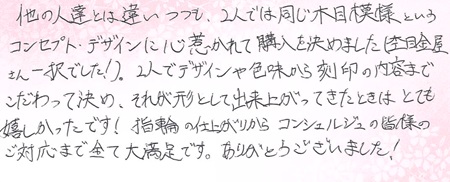 他の人達とは違いつつも、2人では同じ木目模様という
コンセプト・デザインに心惹かれて購入を決めました(杢目金屋
さん一択でした!)。2人でデザインや色味から刻印の内容まで
こだわって決め、それが形として出来上がってきたときはとても
嬉しかったです!指輪の仕上がりからコンシェルジュの皆様の
ご対応まで全て大満足です。ありがとうございました!